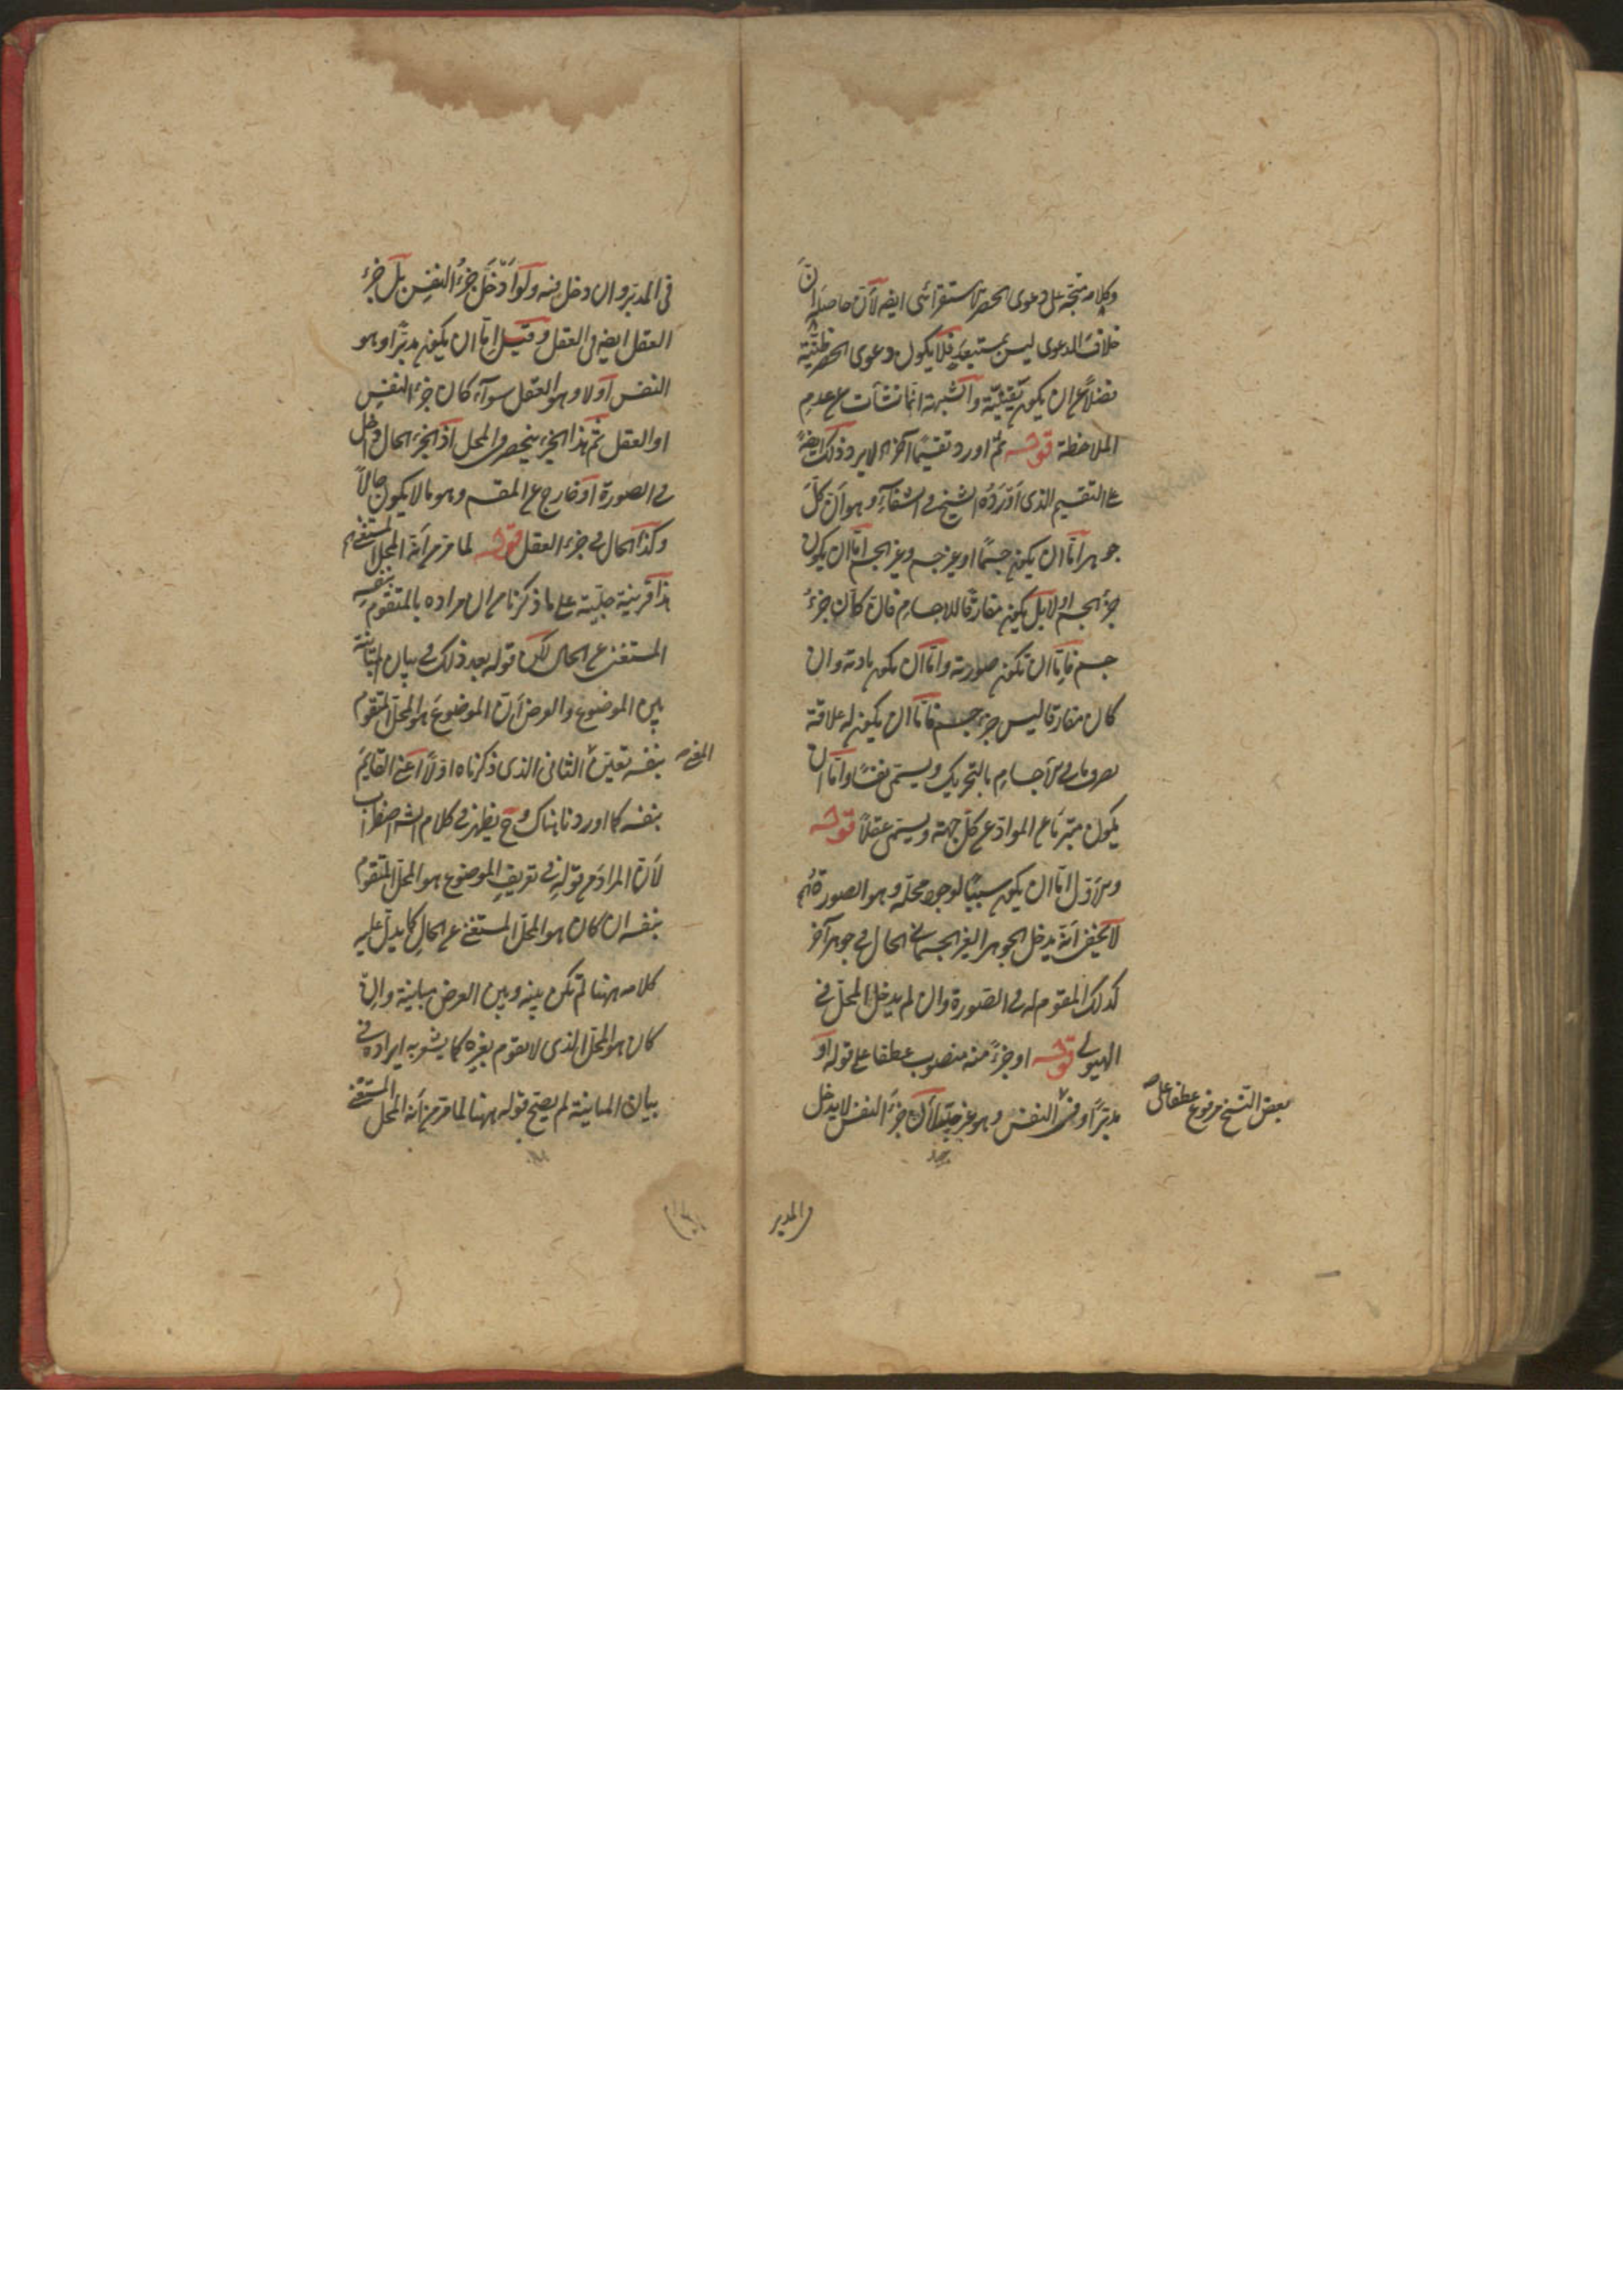 وكلامه متجه على دعوى الحصر الاستقرائى ايضا لأن حاصله أن
خلاف الدعوى ليس بمستبعد فلا يكون دعوى الحصر ظنية
فضلا عن ان يكون يقينية والشبهة انما نشأت عن عدم
الملاحظة قوله ثم اورد تقسيما آخر لا يرد ذلك ايضا
على التقسيم الذى أورده الشيخ فى الشفاء وهو أن كل
جوهر اما ان يكون جسما او غير جسم وغير الجسم اما ان يكون
جزء الجسم او لا بل يكون مفارقا للاجسام فان كان جزء
جسم فاما ان تكون صورته واما ان يكون مادته وان
كان مفارقا ليس جزء جسم فاما ان يكون له علاقة
تصرف ما فى الأجسام بالتحريك ويسمى نفسا واما ان
يكون متبرئا عن المواد عن كل جهة ويسمى عقلا قوله
والأول اما ان يكون سببا لوجود محله وهو الصورة
لا يخفى أنه يدخل الجوهر الغير الجسمانى الحال فى جوهر آخر
كذلك المقوم له فى الصورة وان لم يدخل المحل فى
الهيولى قوله او جزء منه منصوب عطفا على قوله او
مدبرا وفى النفس وهو غير جيد لأن جزء النفس لا يدخل
بعض النسخ مرفوع عطفا على
المدبر
فى المدبر وان دخل فيه ولو أدخل جزء النفس بل جزء
العقل ايضا فى العقل وقيل اما ان يكون مدبرا وهو
النفس أولا وهو العقل سواء كان جزء النفس
او العقل ثم هذا الجزء ينحصر فى المحل اذ الجزء الحال داخل
فى الصورة أو خارج عن المقسم وهو ما لا يكون حالا
وكذا الحال فى جزء العقل قوله لما مر من أنه المحل المستغنى
هذا قرينة جلية على ما ذكرنا من ان مراده بالمتقوم بنفسه
المستغنى عن الحال لكن قوله بعد ذلك فى بيان المباينة
بين الموضوع والعرض أن الموضوع هو المحل المتقوم
بنفسه تعين الثانى الذى ذكرناه اولا أعنى القايم
المعنى
بنفسه كما اوردنا هناك وح يظهر فى كلام الشـ اضطراب
لأن المراد من قوله فى تعريف الموضوع هو المحل المتقوم
بنفسه ان كان هو المحل المستغنى عن الحال كما يدل عليه
كلامه ههنا لم تكن بينه وبين العرض مباينة وان
كان هو المحل الذى لا يقوم بغيره كما يشعر به ايراده فى
بيان المباينة لم يصح قوله ههنا لما مر من أنه المحل المستغنى